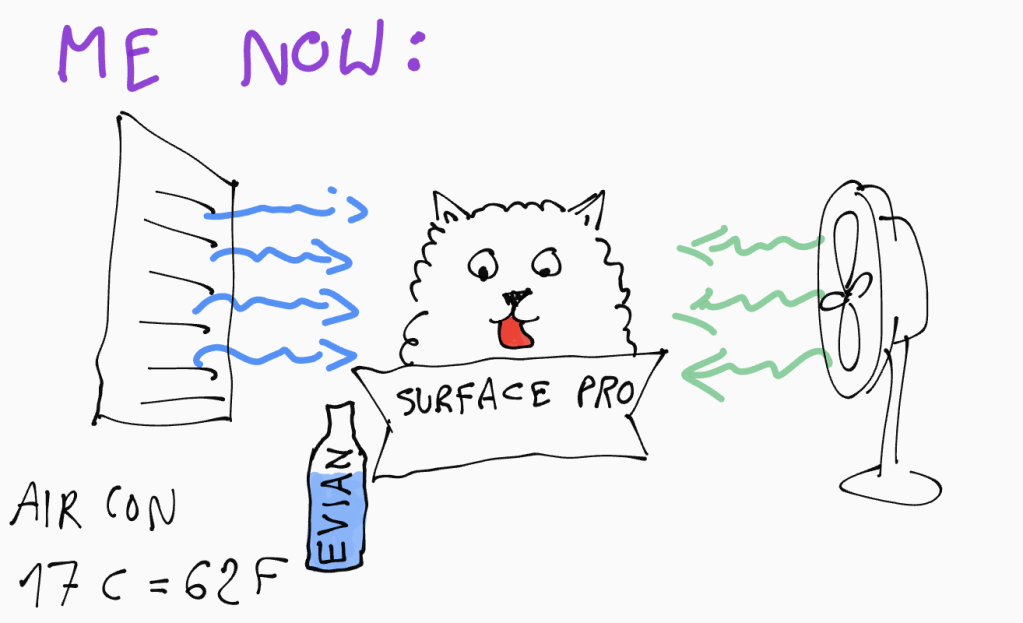 ME NOW:
SURFACE PRO
EVIAN
AIR CON
17 C = 62 F